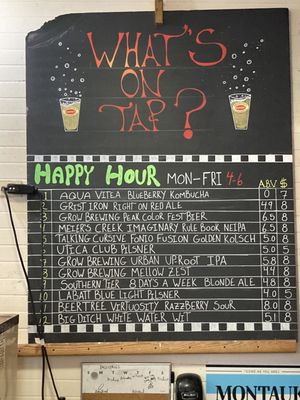 WHAT'S
ON
TAP?
HAPPY HOUR MON-FRI 4-6
ABV $
1 AQUA VITEA BLUEBERRY KOMBUCHA 0 7
2 GRIST IRON RIGHT ON RED ALE 4.9 8
3 GROW BREWING PEAK COLOR FEST BEER 6.5 8
4 MEIERS CREEK IMAGINARY RULE BOOK NEIPA 6.5 8
5 TALKING CURSIVE FONIO FUSION GOLDEN KOLSCH 5.0 8
6 UTICA CLUB PILSNER 5.0 5
7 GROW BREWING URBAN UPROOT IPA 5.8 8
8 GROW BREWING MELLOW ZEST 4.4 8
9 SOUTHERN TIER 8 DAYS A WEEK BLONDE ALE 4.8 8
10 LABATT BLUE LIGHT PILSNER 4.0 5
11 BEERTREE VIRTUOSITY RAZZBERRY SOUR 8.0 8
12 BIG DITCH WHITE WATER WIT 5.1 8
MONTAUK